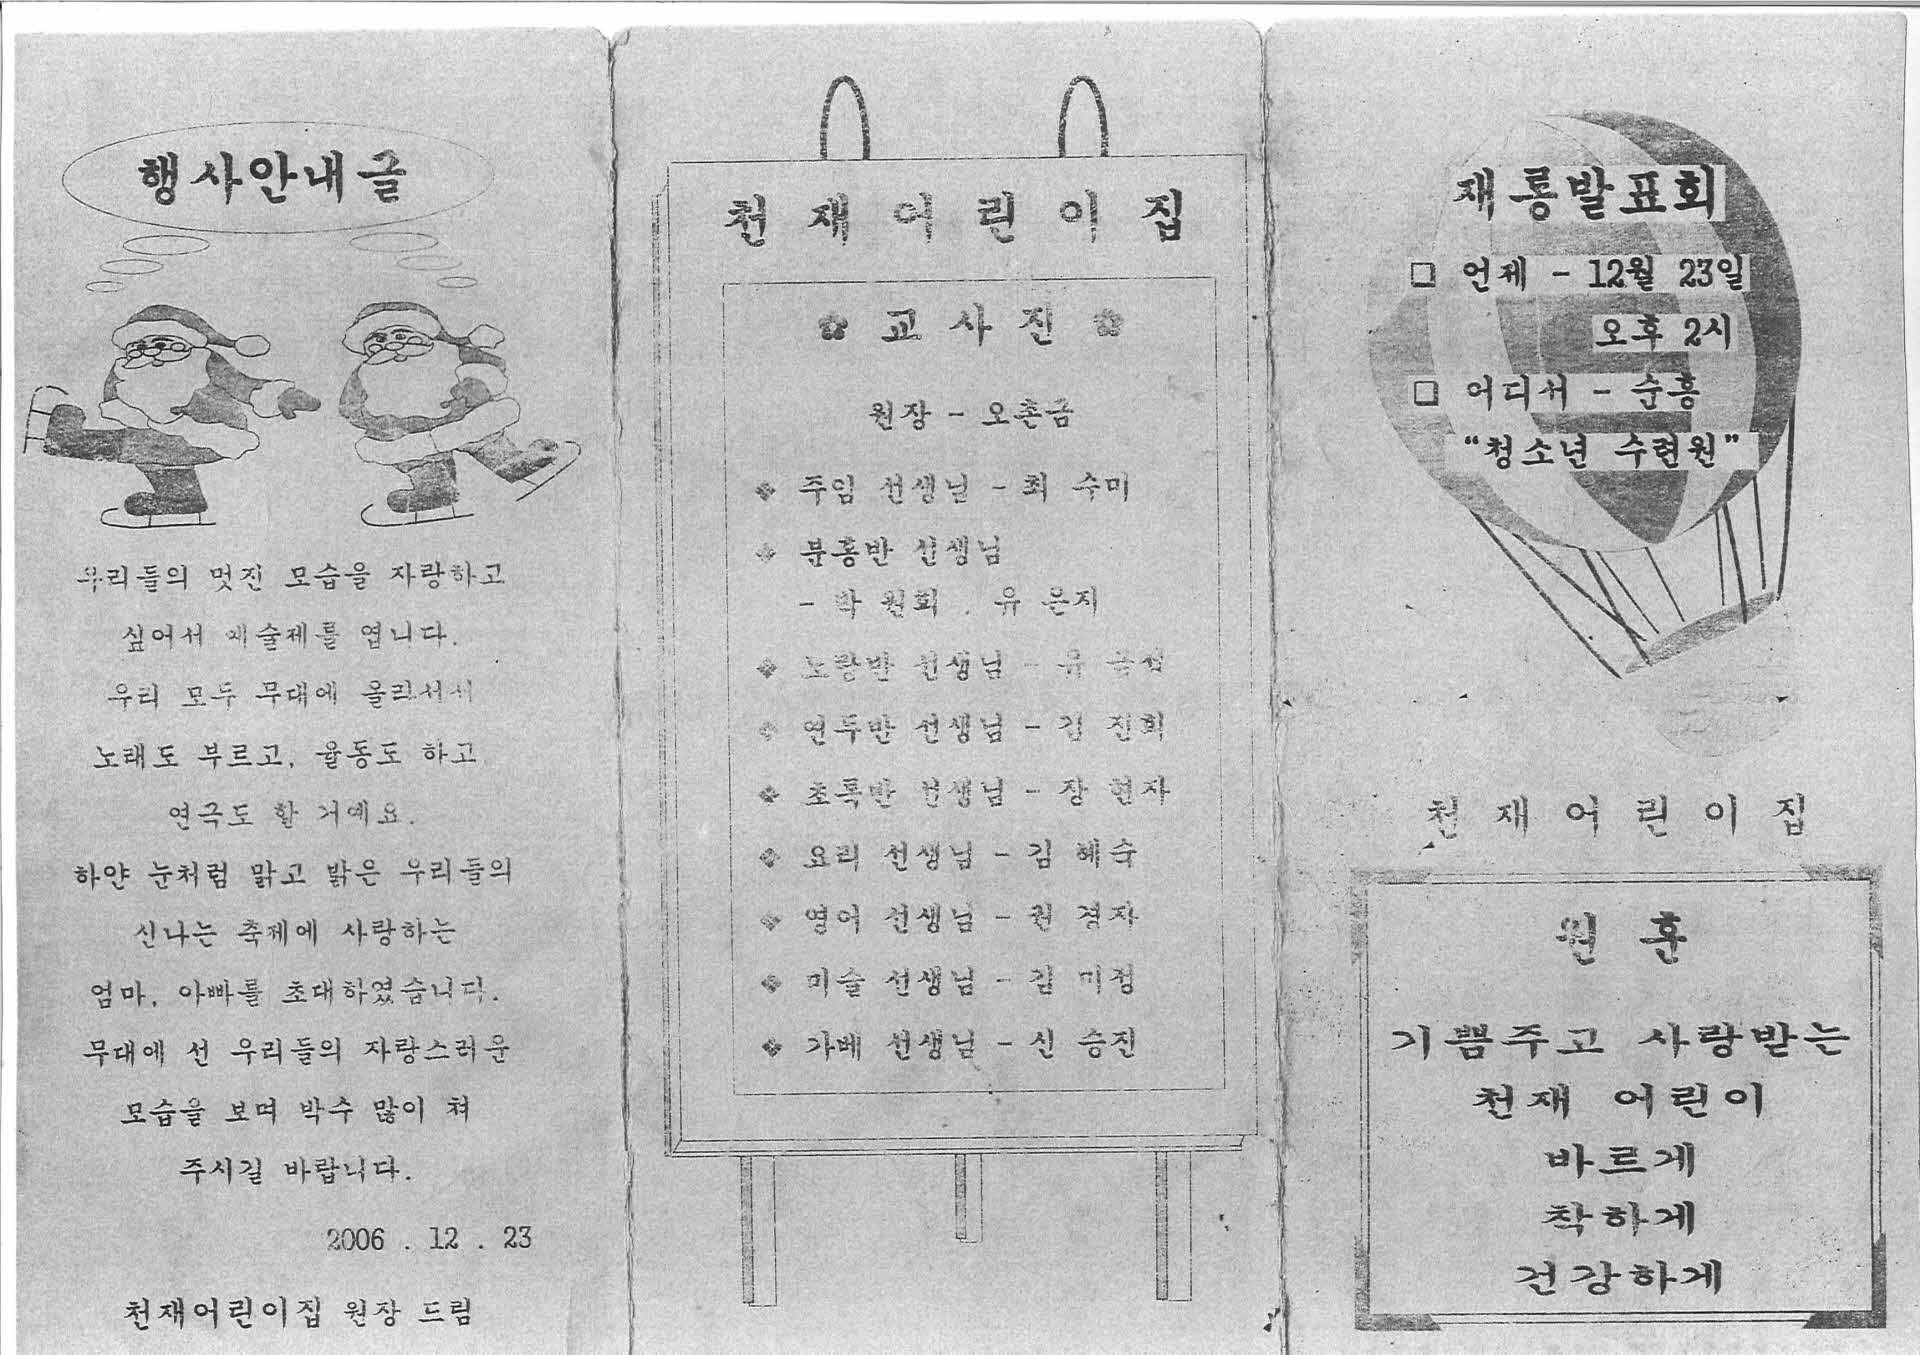 행사안내글
우리들의 멋진 모습을 자랑하고
싶어서 재술제를 엽니다.
우리 모두 무대에 올라서서
노래도 부르고, 율동도 하고
연극도 할 거예요.
하얀 눈처럼 맑고 밝은 우리들의
신나는 축제에 사랑하는
엄마, 아빠를 초대하였습니다.
무대에 선 우리들의 자랑스러운
모습을 보며 박수 많이 쳐
주시길 바랍니다.
2006 . 12 . 23
천재어린이집 원장 드림
천재어린이집
✿ 교사진 ✿
원장 - 오촌금
❖ 주임 선생님 - 최 수미
❖ 분홍반 선생님
- 박 원희 . 유 은지
❖ 노랑반 선생님 - 유
❖ 연두반 선생님 - 김 진희
❖ 초록반 선생님 - 장 현자
❖ 요리 선생님 - 김 혜숙
❖ 영어 선생님 - 권 경자
❖ 미술 선생님 - 김 미정
❖ 가베 선생님 - 신 승진
재롱발표회
□ 언제 - 12월 23일
오후 2시
□ 어디서 - 순흥
“청소년 수련원”
천재어린이집
원훈
기쁨주고 사랑받는
천재 어린이
바르게
착하게
건강하게